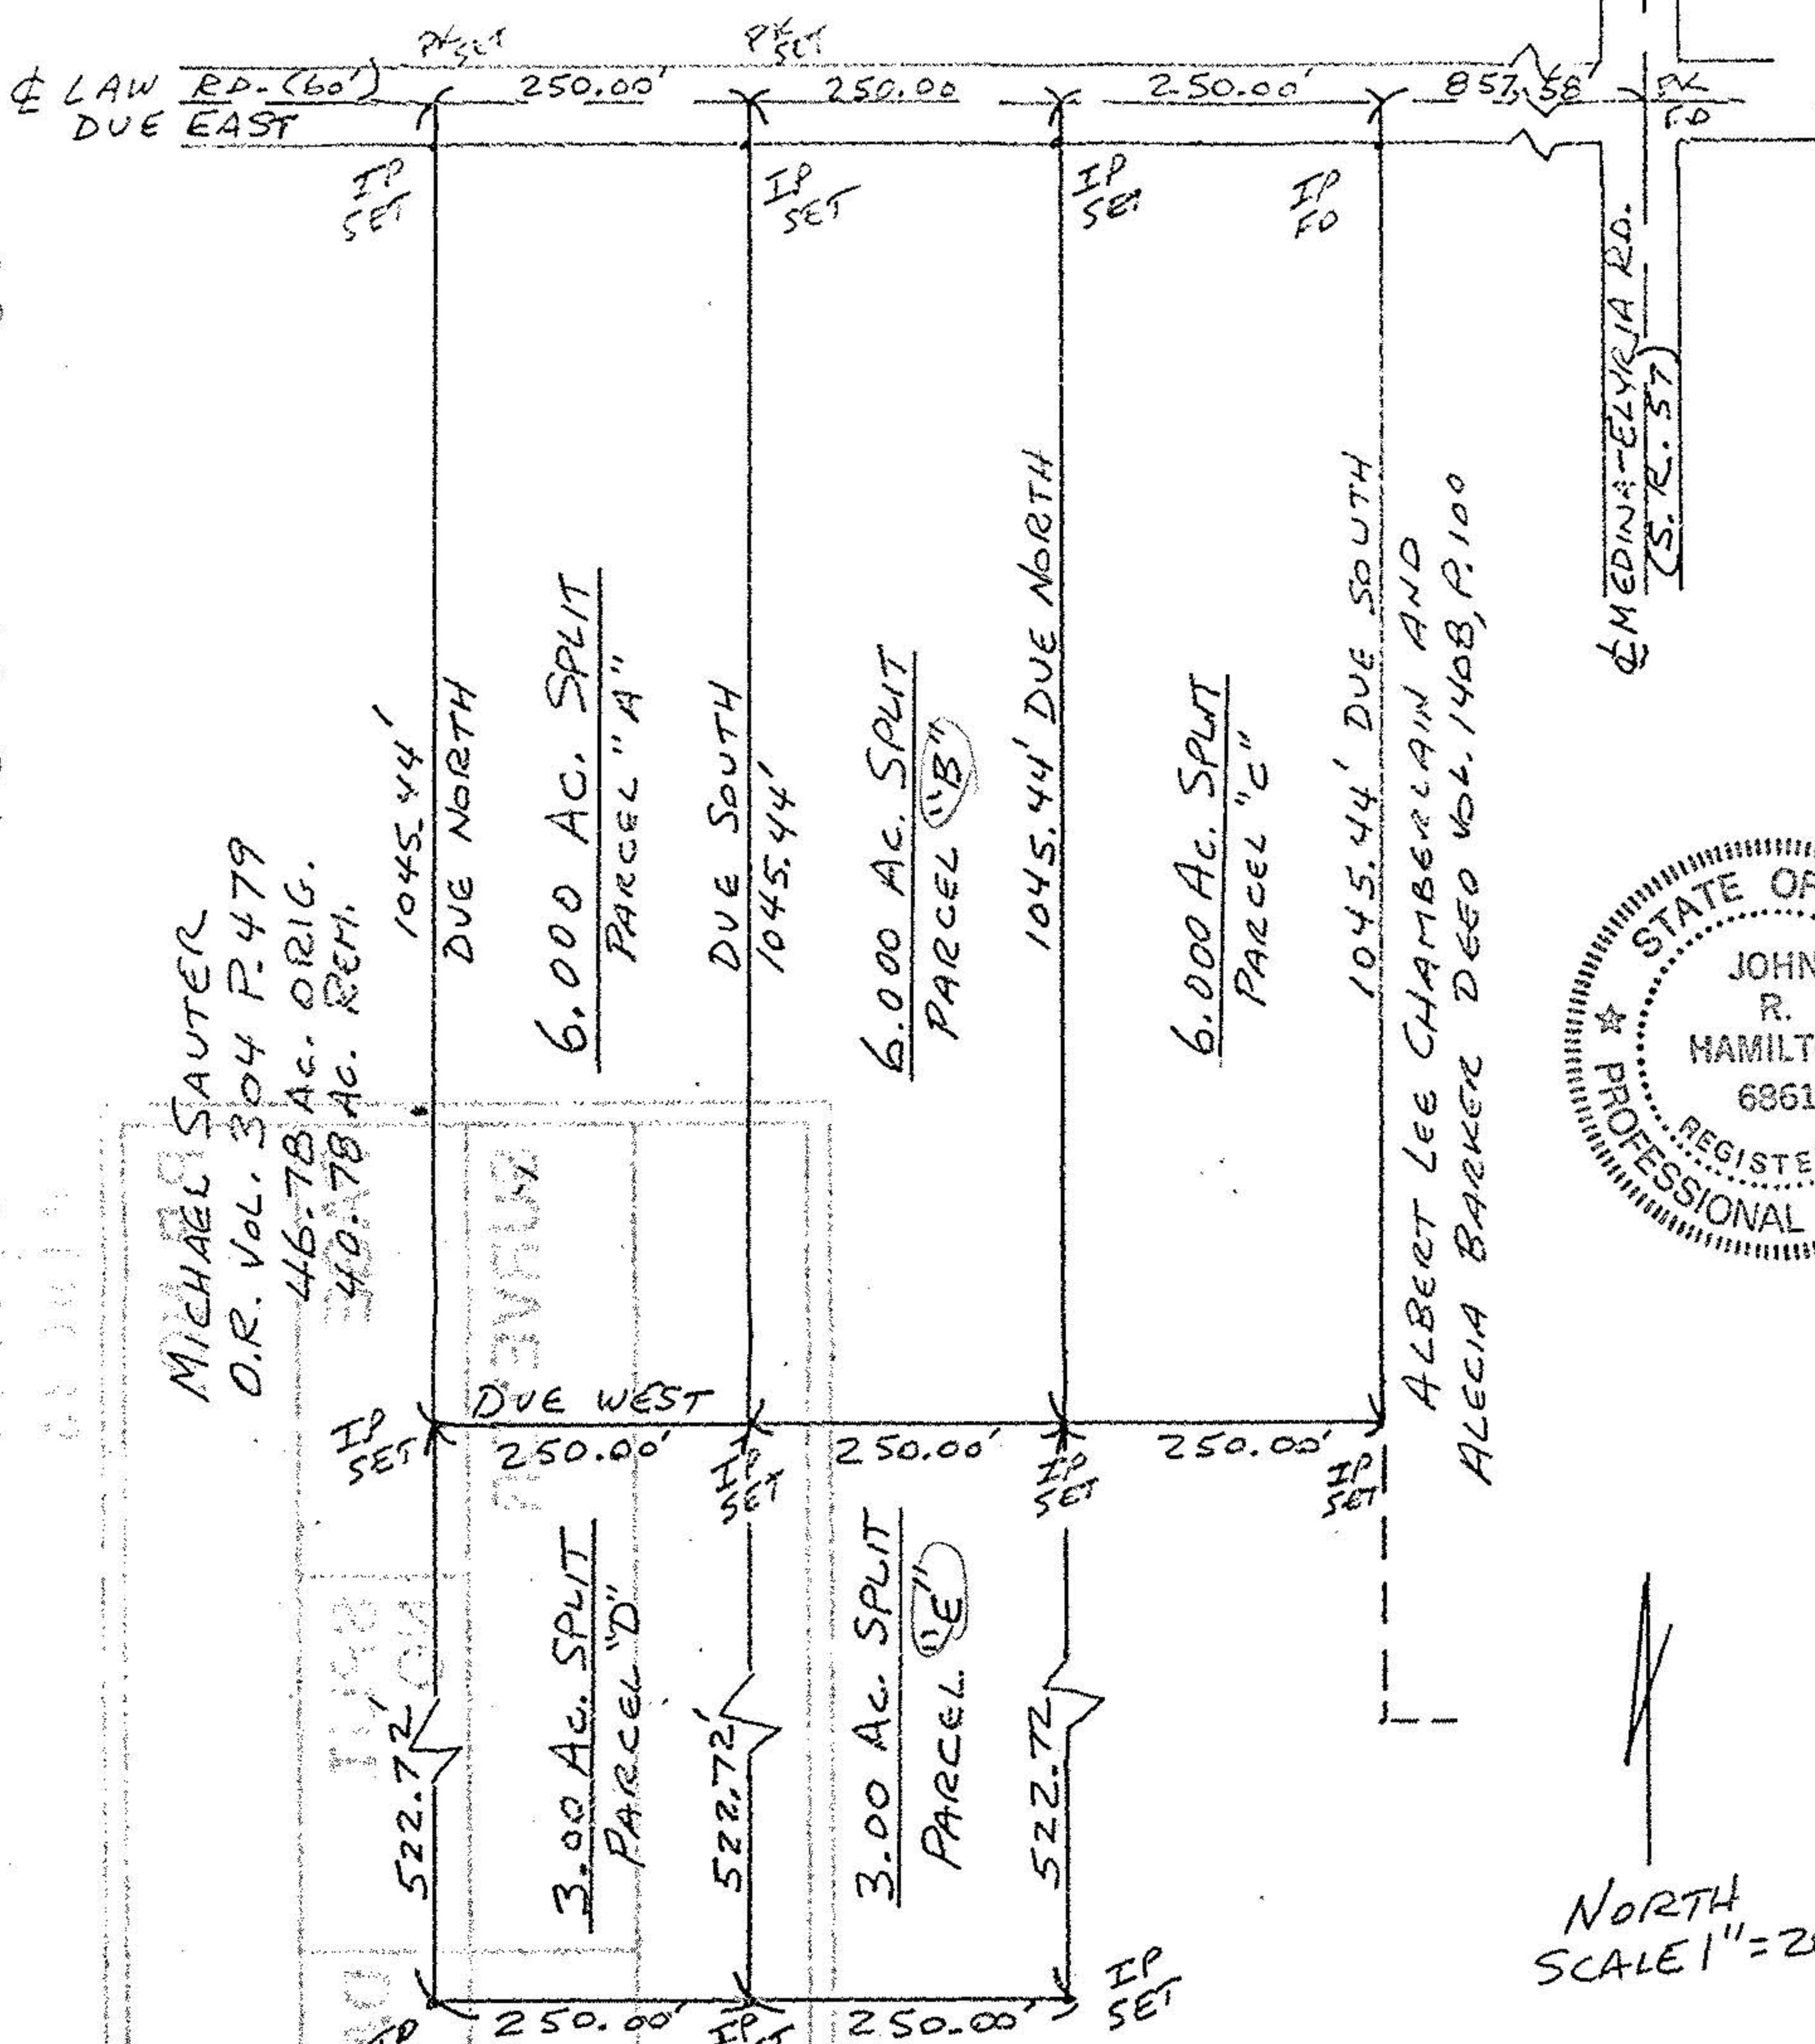 PK SET
PK SET
℄ LAW RD. (60')
DUE EAST
250.00'
250.00
250.00'
857.58'
PK
FD
IP
SET
IP
SET
IP
SET
IP
FD
℄ MEDINA-ELYRIA RD.
(S.R. 57)
MICHAEL SAUTER
O.R. VOL. 304 P. 479
46.78 AC. ORIG.
40.78 AC. REM.
1045.44'
DUE NORTH
6.000 AC. SPLIT
PARCEL "A"
DUE SOUTH
1045.44'
6.000 AC. SPLIT
PARCEL "B"
1045.44' DUE NORTH
6.000 AC. SPLIT
PARCEL "C"
1045.44' DUE SOUTH
ALBERT LEE CHAMBERLAIN AND
ALECIA BARKER DEED VOL. 1408, P. 100
STATE OF
JOHN
R.
HAMILT
6861
REGISTE
PROFESSIONAL
DUE WEST
IP
SET
250.00'
IP
SET
250.00'
IP
SET
250.00'
IP
SET
522.72'
3.00 AC. SPLIT
PARCEL "D"
522.72'
3.00 AC. SPLIT
PARCEL "E"
522.72
IP
250.00'
IP
250.00'
IP
SET
NORTH
SCALE 1"=2